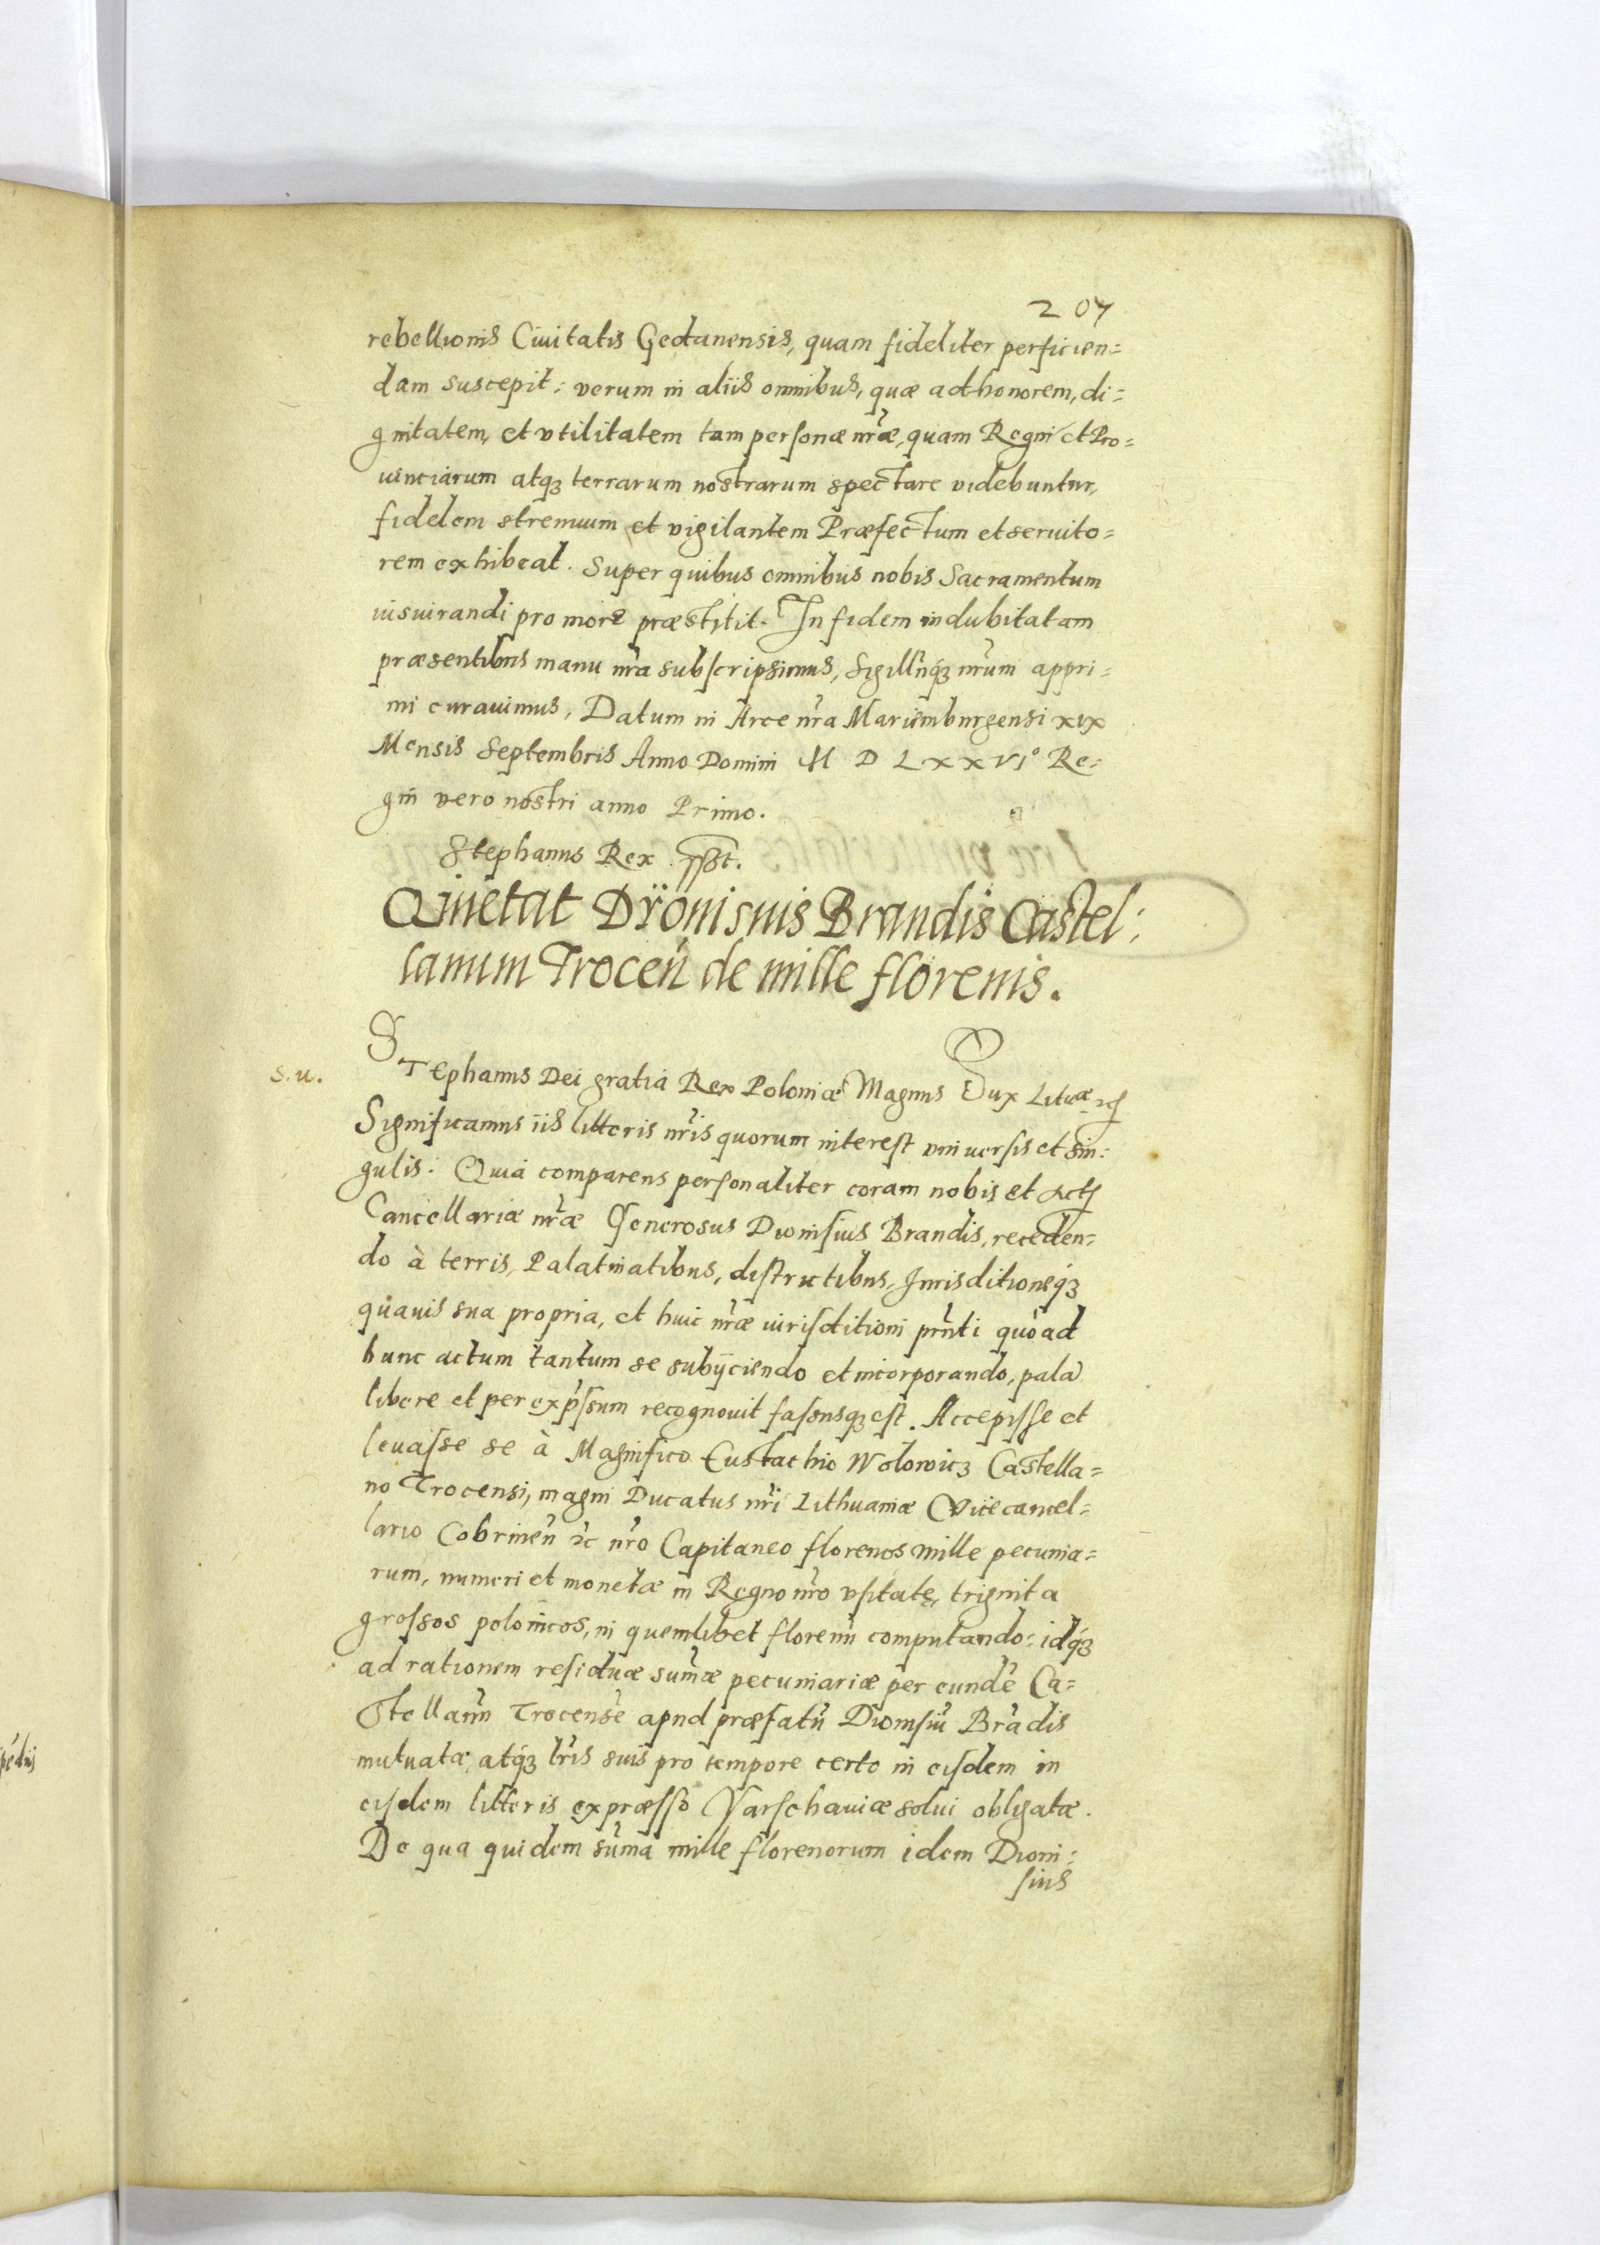 207
rebellionis Ciuitatis Gedanensis, quam fideliter perficien=
dam suscepit: verum in aliis omnibus, quæ ad honorem, di=
gnitatem, et vtilitatem tam personæ nr̃æ, quam Regni et Pro=
uinciarum atqꝫ terrarum nostrarum spectare videbuntur,
fidelem strenuum et vigilantem Præfectum et seruito=
rem exhibeat. Super quibus omnibus nobis Sacramentum
iuisiurandi pro more præstitit. In fidem indubitatam
præsentibus manu nr̃a subscripsimus, Sigillũqꝫ nr̃um appri=
mi curauimus, Datum in Arce nr̃a Mariæmburgensi xix
Mensis Septembris Anno Domini M D L x x vi° Re=
gni vero nostri anno Primo.
Stephanus Rex sst.
Quietat Dÿonisius Brandis Castel:
lanum Trocen̄ de mille florenis.
s. u.
STephanus Dei gratia Rex Poloniæ Magnus Dux Lituæ ꝛc
Significamus iis litteris nr̃is quorum interest vniuersis et sin:
gulis: Quia comparens personaliter coram nobis et Actis
Cancellariæ nr̃æ Generosus Dionisius Brandis, receden=
do à terris, Palatinatibus, districtibus, Jurisditioneqꝫ
quauis sua propria, et huic nr̃æ iurisditioni prñti quoad
hunc actum tantum se subÿciendo et incorporando, palã
libere et per exp̃ssum recognouit fassusqꝫ est. Accepisse et
leuasse se à Magnifico Eustachio Wolowicz Castella=
no Trocensi, magni Ducatus nr̃i Lithuaniæ Vicecancel=
lario Cobrinen̄ ꝛc nr̃o Capitaneo florenos mille pecunia=
rum, numeri et monetæ in Regno nr̃o vsitatę, triginta
grossos polonicos, in quemlibet florenũ computando: idqꝫ
ad rationem residuæ sum̃æ pecuniariæ per eundẽ Ca=
stellanũ Trocensẽ apud præfatũ Dionisiũ Brãdis
mutuatæ, atqꝫ lr̃is suis pro tempore certo in eisdem in
eisdem litteris expræsso Varschauiæ solui obligatæ.
De qua quidem sum̃a mille florenorum idem Dioni=
sius